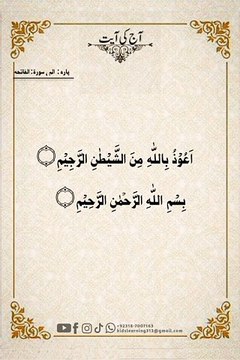 آج کی آیت
پارہ : الم , سورۃ : الفاتحہ
اَعُوْذُ بِاللّٰهِ مِنَ الشَّيْطٰنِ الرَّجِيْمِ
بِسْمِ اللّٰهِ الرَّحْمٰنِ الرَّحِيْمِ
+92318-7007143
kidslearning313@gmail.com